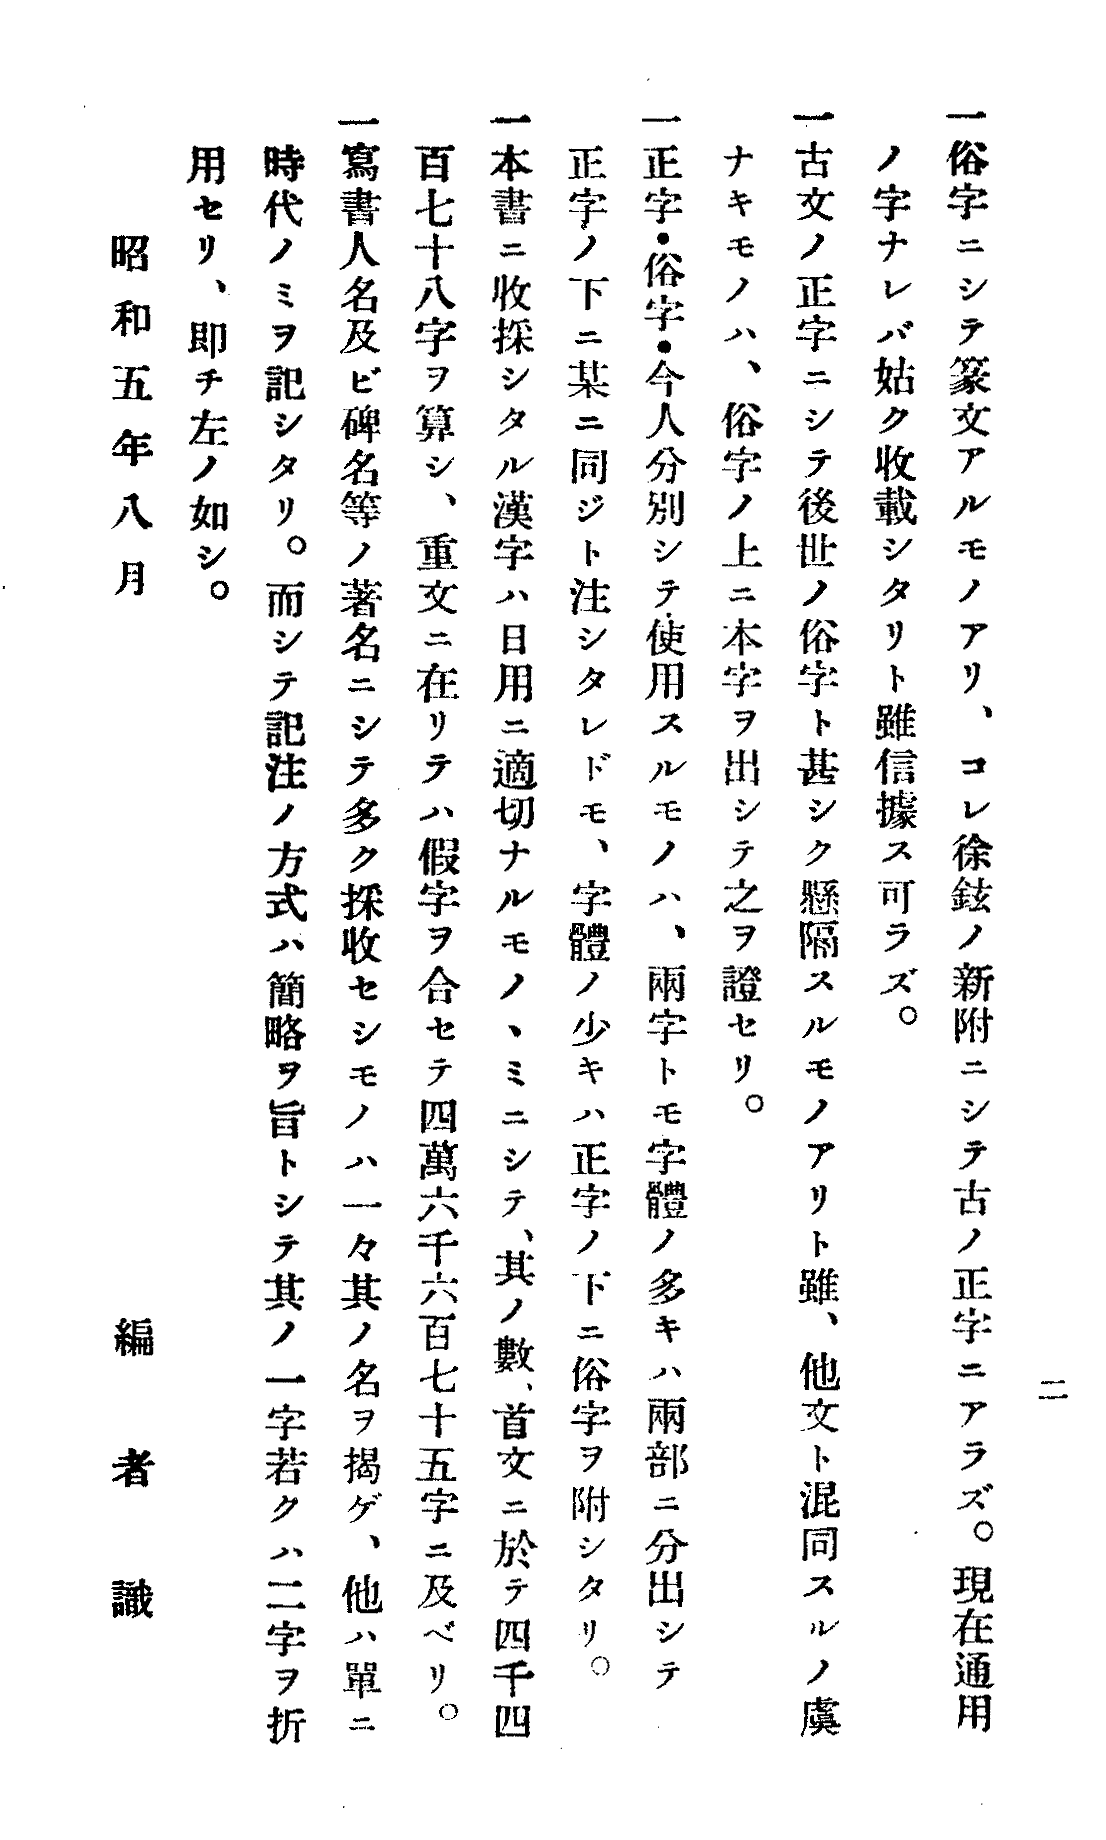 二
一俗字ニシテ篆文アルモノアリ、コレ徐鉉ノ新附ニシテ古ノ正字ニアラズ。現在通用
ノ字ナレバ姑ク收載シタリト雖信據ス可ラズ。
一古文ノ正字ニシテ後世ノ俗字ト甚シク懸隔スルモノアリト雖、他文ト混同スルノ虞
ナキモノハ、俗字ノ上ニ本字ヲ出シテ之ヲ證セリ。
一正字・俗字・今人分別シテ使用スルモノハ、兩字トモ字體ノ多キハ兩部ニ分出シテ
正字ノ下ニ某ニ同ジト注シタレドモ、字體ノ少キハ正字ノ下ニ俗字ヲ附シタリ。
一本書ニ收採シタル漢字ハ日用ニ適切ナルモノヽミニシテ、其ノ數、首文ニ於テ四千四
百七十八字ヲ算シ、重文ニ在リテハ假字ヲ合セテ四萬六千六百七十五字ニ及ベリ。
一寫書人名及ビ碑名等ノ著名ニシテ多ク採收セシモノハ一々其ノ名ヲ揭ゲ、他ハ單ニ
時代ノミヲ記シタリ。而シテ記注ノ方式ハ簡略ヲ旨トシテ其ノ一字若クハ二字ヲ折
用セリ、即チ左ノ如シ。
昭和五年八月　編者識